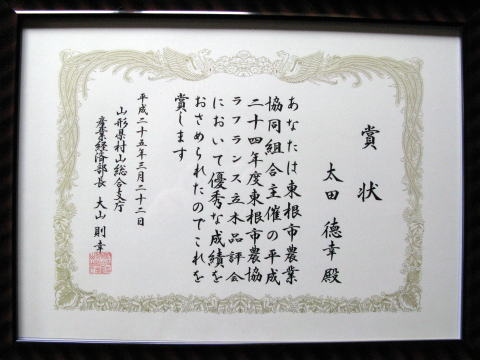 賞状
太田 德幸 殿
あなたは東根市農業
協同組合主催の平成
二十四年度東根市農協
ラフランス立木品評会
において優秀な成績を
おさめられたのでこれを
賞します
平成二十五年三月二十二日
山形県村山総合支庁
産業経済部長 大山 則幸